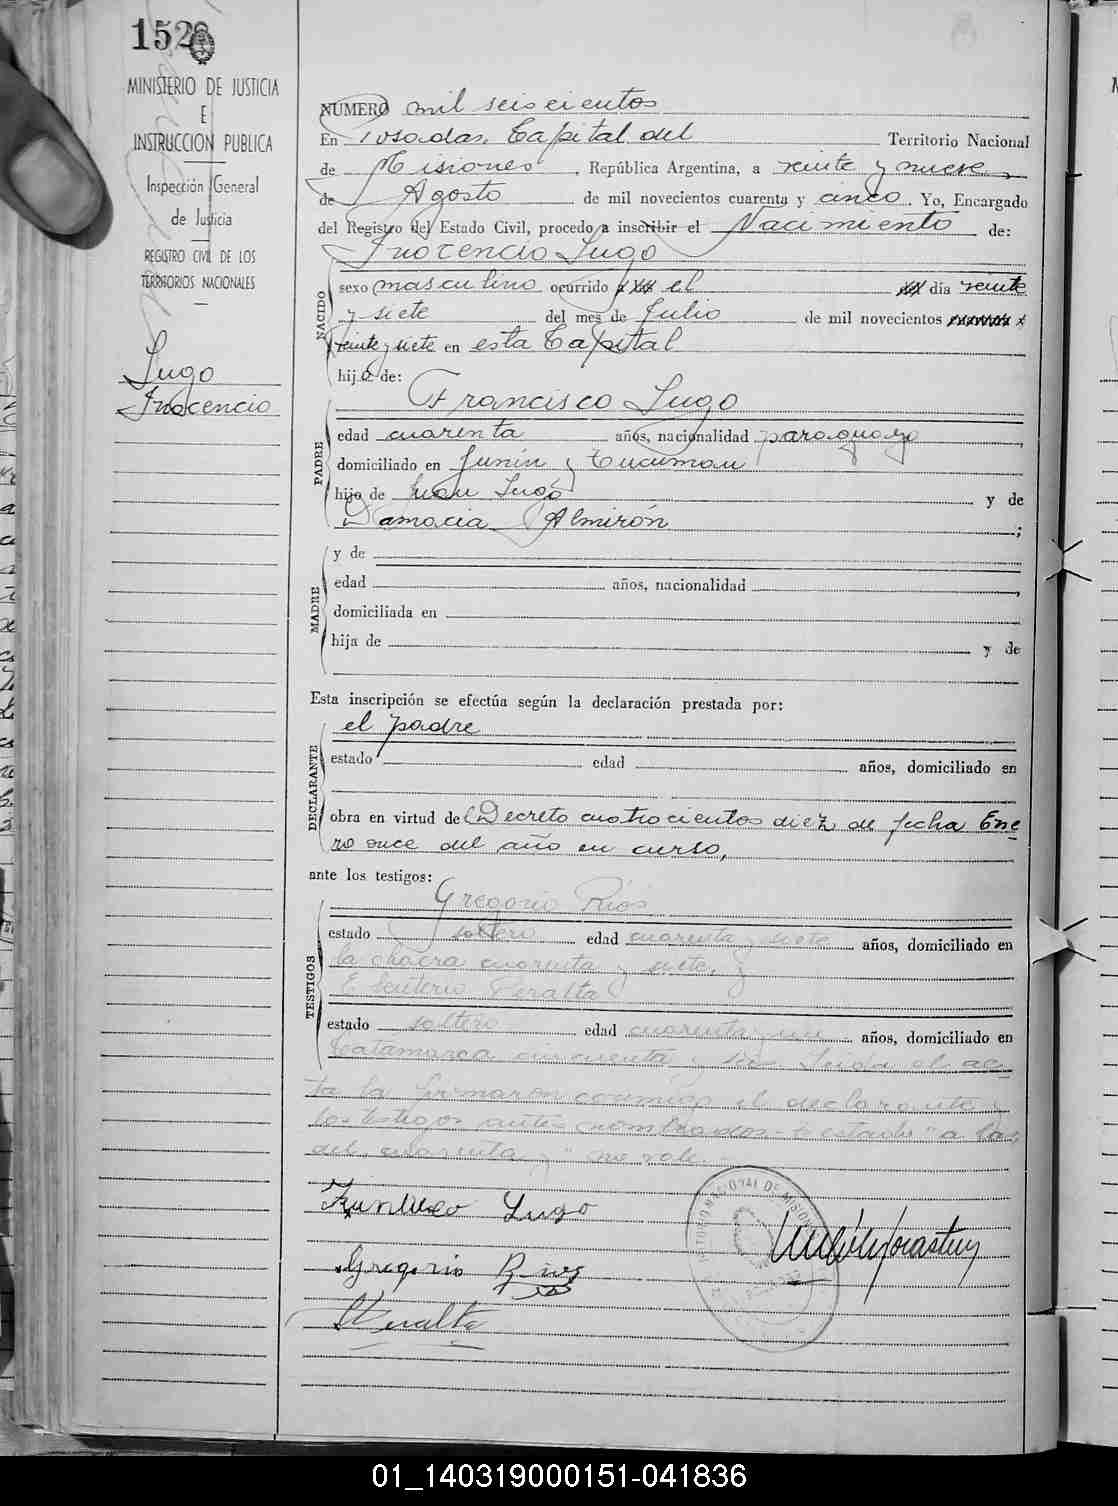 152
MINISTERIO DE JUSTICIA
E
INSTRUCCION PUBLICA
Inspección General
de Justicia
REGISTRO CIVIL DE LOS
TERRITORIOS NACIONALES
Lugo
Inocencio
NUMERO mil seiscientos
En Posadas, Capital del Territorio Nacional
de Misiones, República Argentina, a veinte y nueve
de Agosto de mil novecientos cuarenta y cinco. Yo, Encargado
del Registro del Estado Civil, procedo a inscribir el Nacimiento de:
Inocencio Lugo
NACIDO
sexo masculino ocurrido el día veinte
y siete del mes de Julio de mil novecientos
veinte y siete en esta Capital
hijo de:
Francisco Lugo
PADRE
edad cuarenta años, nacionalidad paraguayo,
domiciliado en Junín y Tucumán
hijo de Juan Lugo y de
Damacia Almirón;
MADRE
y de
edad años, nacionalidad
domiciliada en
hija de y de
Esta inscripción se efectúa según la declaración prestada por:
el padre
DECLARANTE
estado edad años, domiciliado en
obra en virtud de Decreto cuatrocientos diez de fecha Ene
ro once del año en curso,
ante los testigos:
Gregorio Ríos
TESTIGOS
estado soltero edad cuarenta y siete años, domiciliado en
la chacra cuarenta y siete, y
Eleuterio Peralta
estado soltero edad cuarenta y un años, domiciliado en
Catamarca cincuenta y Leída el ac-
ta la firmaron conmigo el declarante y
los testigos antes nombrados.- testado "a las
del, cuarenta y" no vale.-
Francisco Lugo
Gregorio Rios
Peralta
01_140319000151-041836